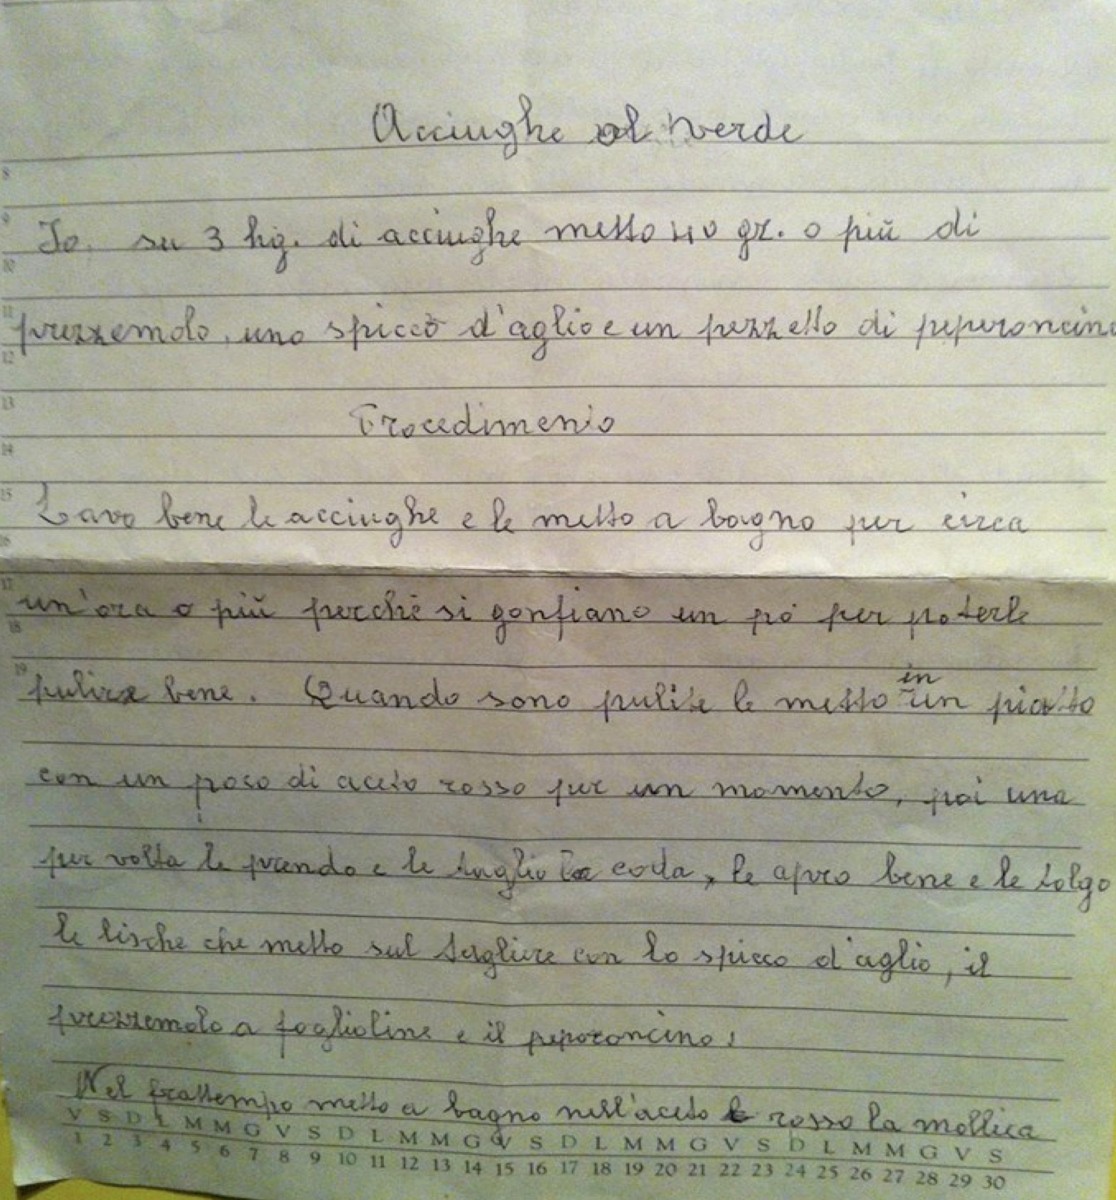 Acciughe al verde
8
9
Io, su 3 hg. di acciughe metto 40 gr. o più di
10
11
prezzemolo, uno spicco d'aglio e un pezzetto di peperoncino
12
13
Procedimento
14
15
Lavo bene le acciughe e le metto a bagno per circa
16
17
un'ora o più perché si gonfiano un pò per poterle
18
19
pulire bene. Quando sono pulite le metto in un piatto
con un poco di aceto rosso per un momento, poi una
per volta le prendo e le taglio la coda, le apro bene e le tolgo
le lische che metto sul tagliere con lo spicco d'aglio, il
prezzemolo a foglioline e il peperoncino.
Nel frattempo metto a bagno nell'aceto rosso la mollica
V S D L M M G V S D L M M G V S D L M M G V S D L M M G V S
1 2 3 4 5 6 7 8 9 10 11 12 13 14 15 16 17 18 19 20 21 22 23 24 25 26 27 28 29 30